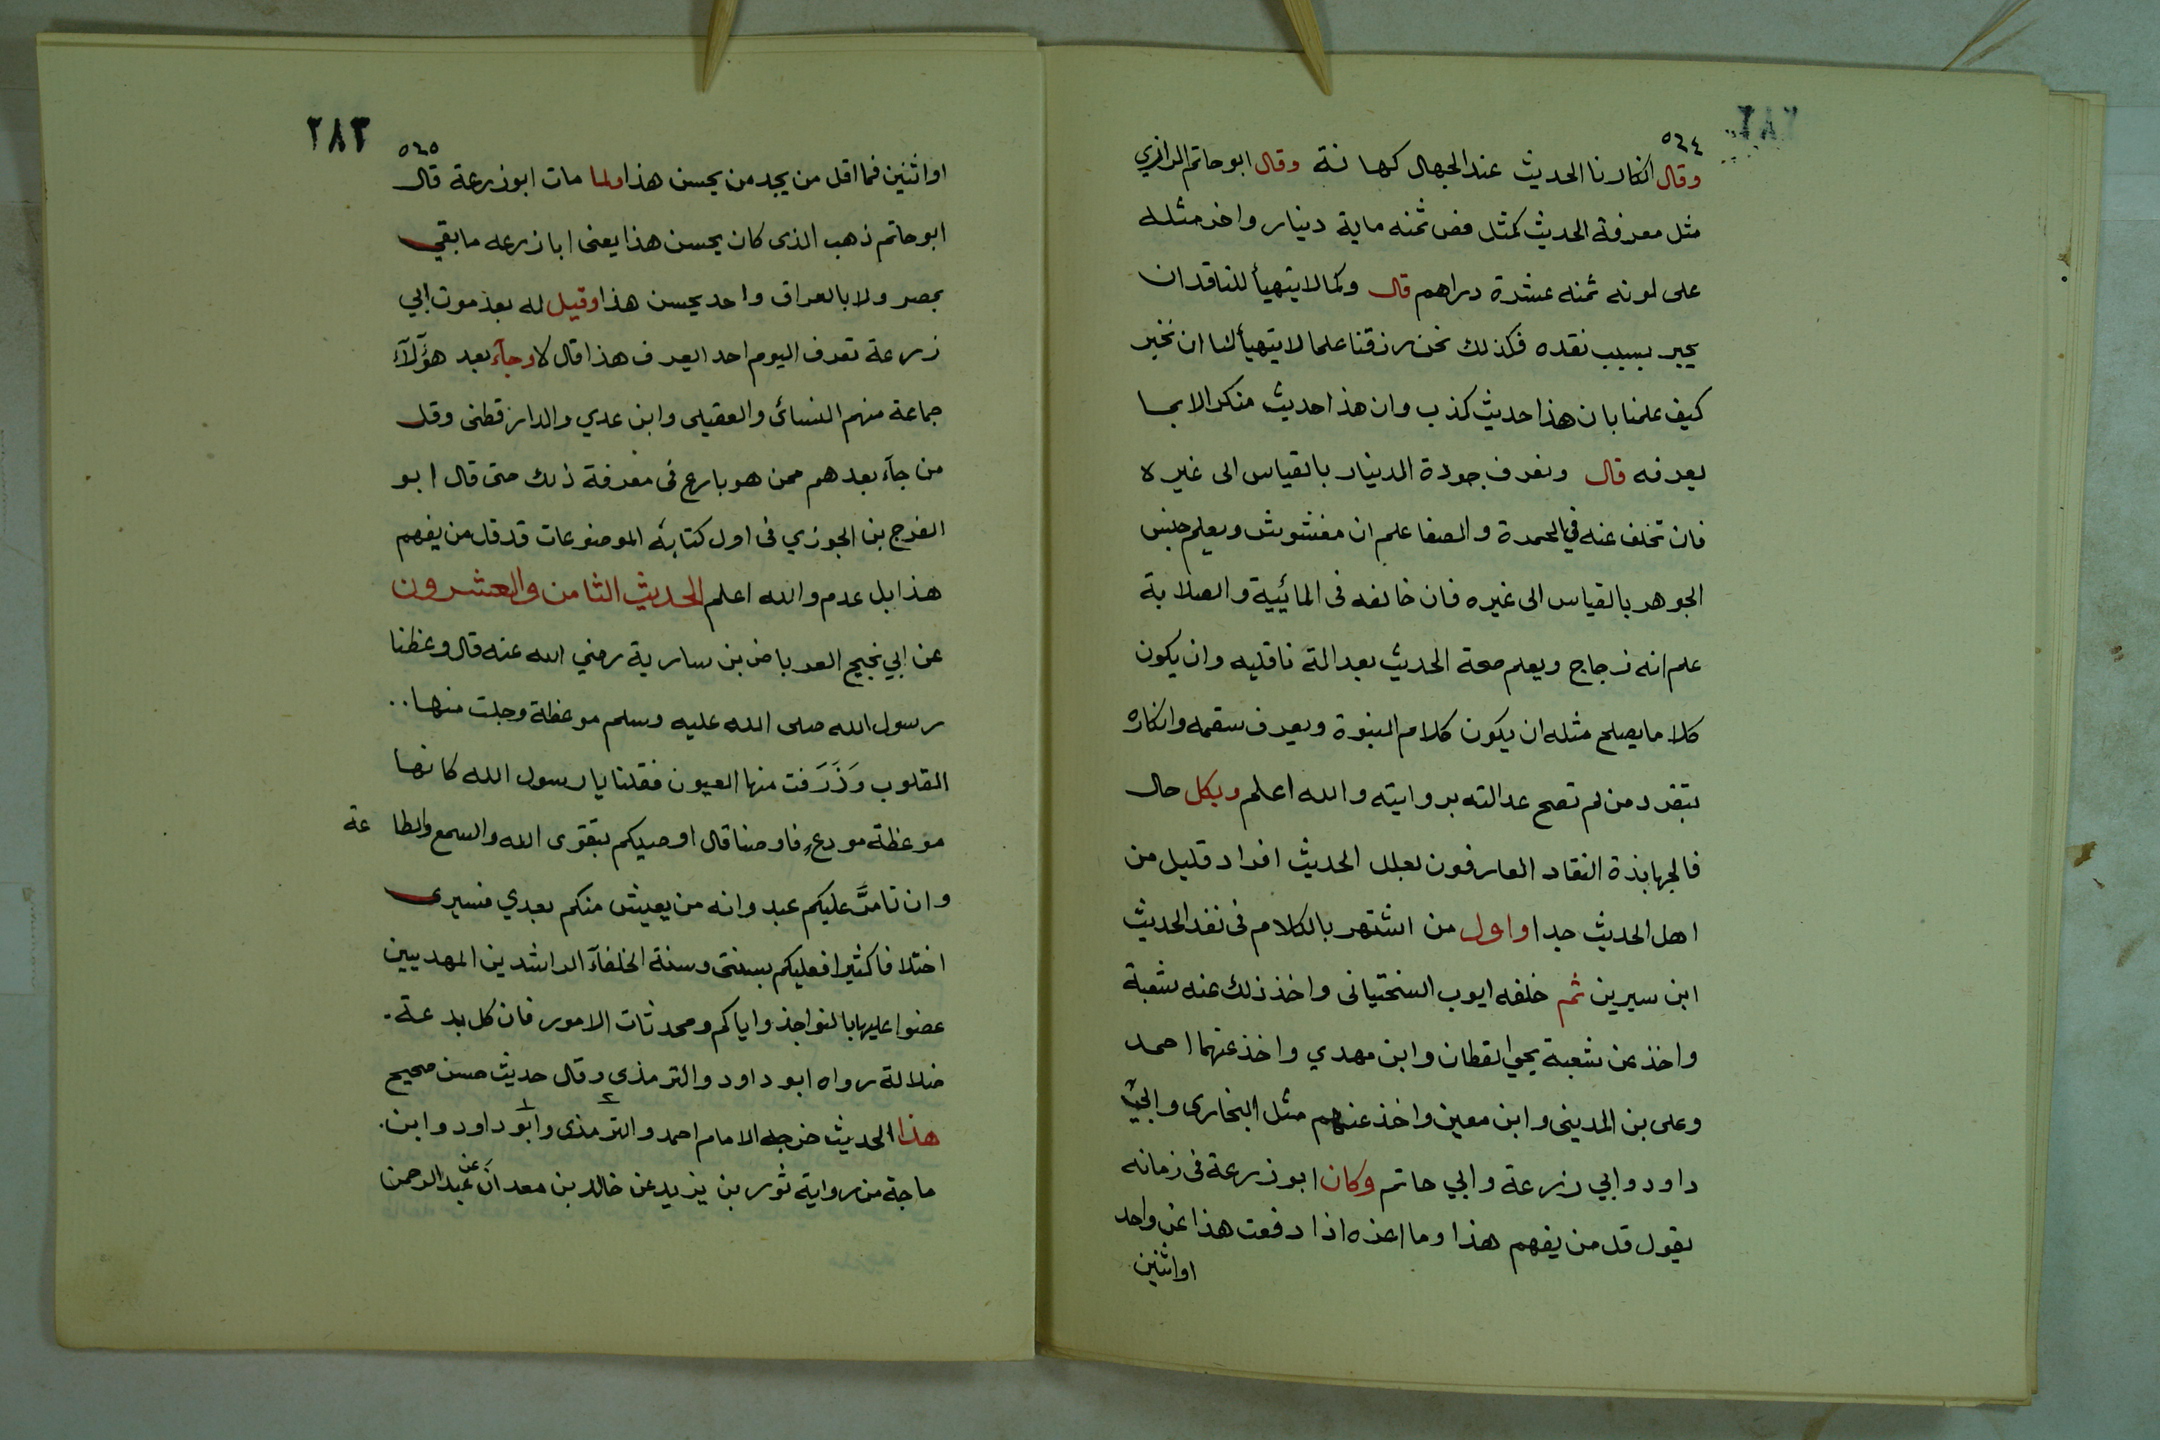 ٥٦٤
وقال انكارنا الحديث عند الجهال كهانة وقال ابو حاتم الرازي
مثل معرفة الحديث كمثل فص ثمنه ماية دينار واخر مثله
على لونه ثمنه عشرة دراهم قال وكما لا يتهيأ للناقد ان
يخبر بسبب نقده فكذلك نحن رزقنا علما لا يتهيأ لنا ان نخبر
كيف علمنا بان هذا حديث كذب وان هذا حديث منكر الا بما
يعرفه قال ونعرف جودة الدينار بالقياس الى غيره
فان تخلف عنه في الحمرة والصفا علم ان مغشوش ويعلم جنس
الجوهر بالقياس الى غيره فان خالفه في المائية والصلابة
علم انه زجاج ويعلم صحة الحديث بعدالة ناقليه وان يكون
كلاما يصلح مثله ان يكون كلام النبوة ويعرف سقمه وانكاره
بتفرد من لم تصح عدالته بروايته والله اعلم وبكل حال
فالجهابذة النقاد العارفون بعلل الحديث افراد قليل من
اهل الحديث جدا واول من اشتهر بالكلام في نقد الحديث
ابن سيرين ثم خلفه ايوب السختياني واخذ ذلك عنه شعبة
واخذ عن شعبة يحي القطان وابن مهدي واخذ عنهما احمد
وعلى بن المديني وابن معين واخذ عنهم مثل البخاري وابي
داود وابي زرعة وابي حاتم وكان ابو زرعة في زمانه
يقول قل من يفهم هذا وما اعزه اذا دفعت هذا عن واحد
او اثنين
٢٨٣
٥٦٥
او اثنين فما اقل من يجد من يحسن هذا ولما مات ابو زرعة قال
ابو حاتم ذهب الذي كان يحسن هذا يعني ابا زرعه ما بقي
بمصر ولا بالعراق واحد يحسن هذا وقيل له بعد موت ابي
زرعة تعرف اليوم احد يعرف هذا قال لا وجآء بعد هؤلآء
جماعة منهم النسائي والعقيلي وابن عدي والدارقطني وقل
من جآء بعدهم ممن هو بارع في معرفة ذلك حتى قال ابو
الفرج بن الجوزي في اول كتابه الموضوعات قد قل من يفهم
هذا بل عدم والله اعلم الحديث الثامن والعشرون
عن ابي نجيح العرباض بن سارية رضي الله عنه قال وعظنا
رسول الله صلى الله عليه وسلم موعظة وجلت منها..
القلوب وَذَرَفت منها العيون فقلنا يا رسول الله كانها
موعظة مودع فاوصنا قال اوصيكم بتقوى الله والسمع والطاعة
وان تامرَّ عليكم عبد وانه من يعيش منكم بعدي فسيرى
اختلافا كثيرا فعليكم بسنتي وسنة الخلفآء الراشدين المهديين
عضوا عليها بالنواجذ واياكم ومحدثات الامور فان كل بدعة.
ضلالة رواه ابو داود والترمذي وقال حديث حسن صحيح
هذا الحديث خرجه الامام احمد والترمذي وابو داود وابن.
ماجة من رواية ثور بن يزيد عن خالد بن معدان عن عبد الرحمن